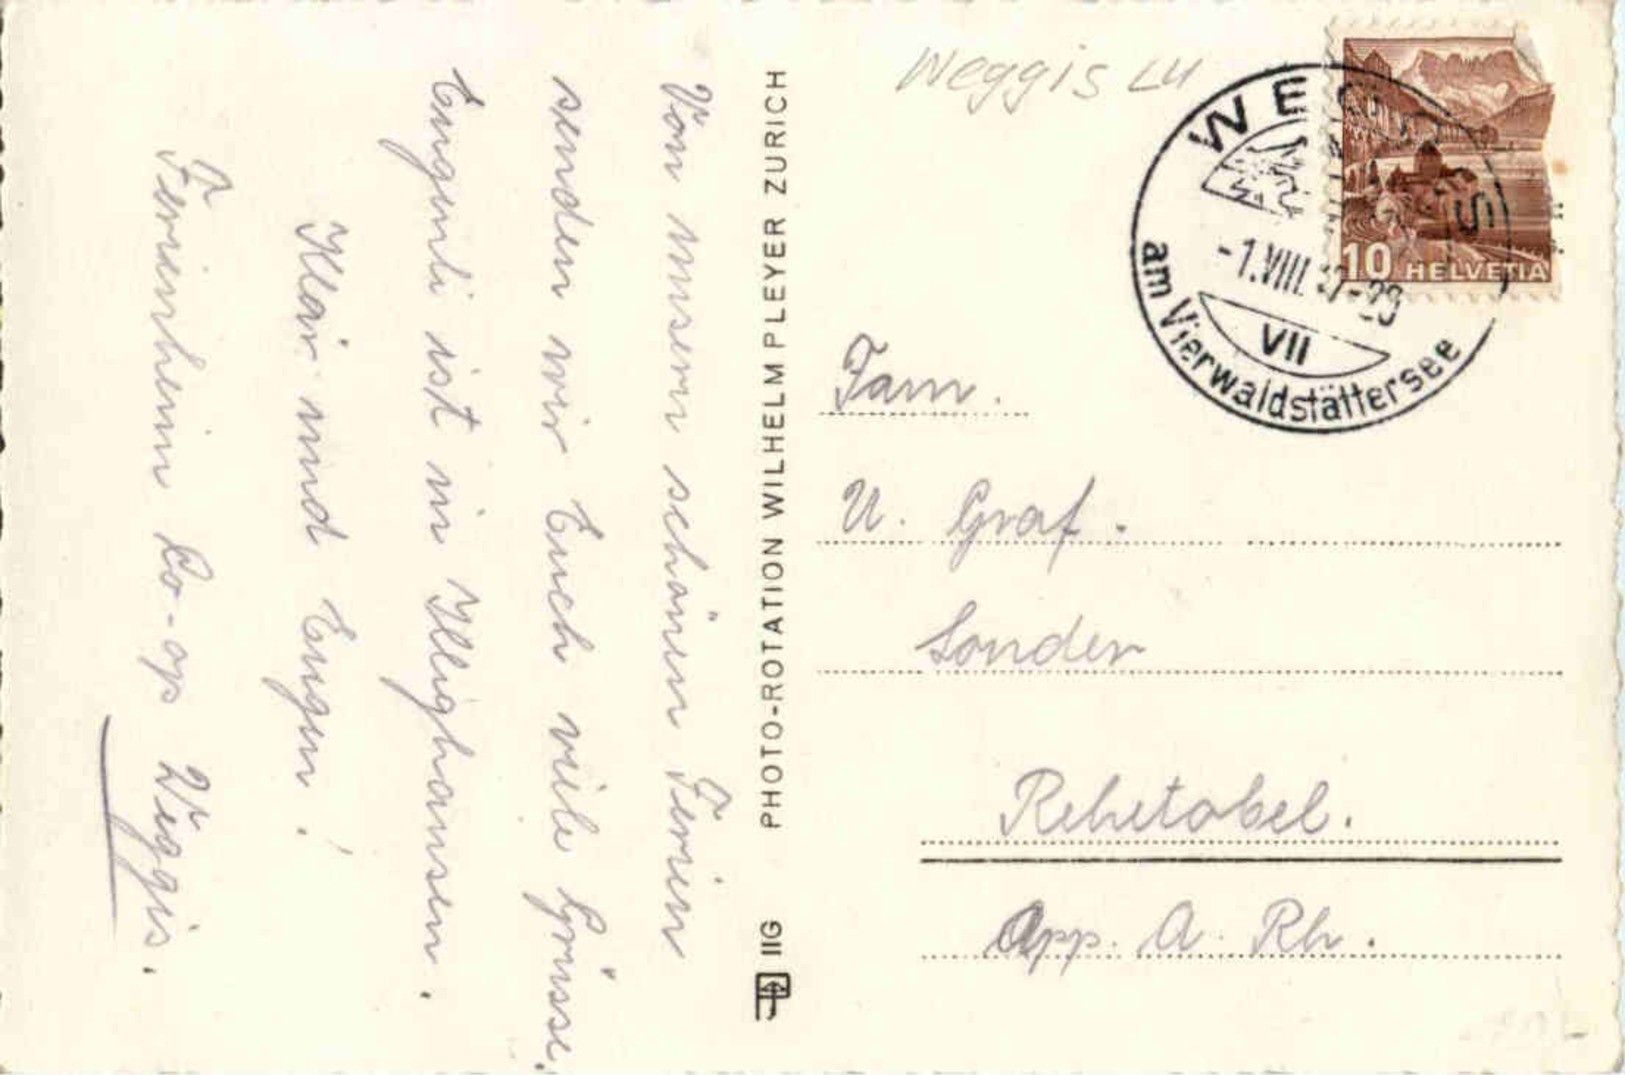 Von unsern schönen Ferien
senden wir Euch viele Grüsse.
Eugenli ist in Illighausen.
Klär und Eugen!
Ferienheim Co-op Weggis.
PHOTO-ROTATION WILHELM PLEYER ZURICH
IIG
Weggis LU
WEGGIS
-1.VIII.
VII
am Vierwaldstättersee
10 HELVETIA
Fam.
U. Graf.
Sonder
Rehetobel.
App. A. Rh.